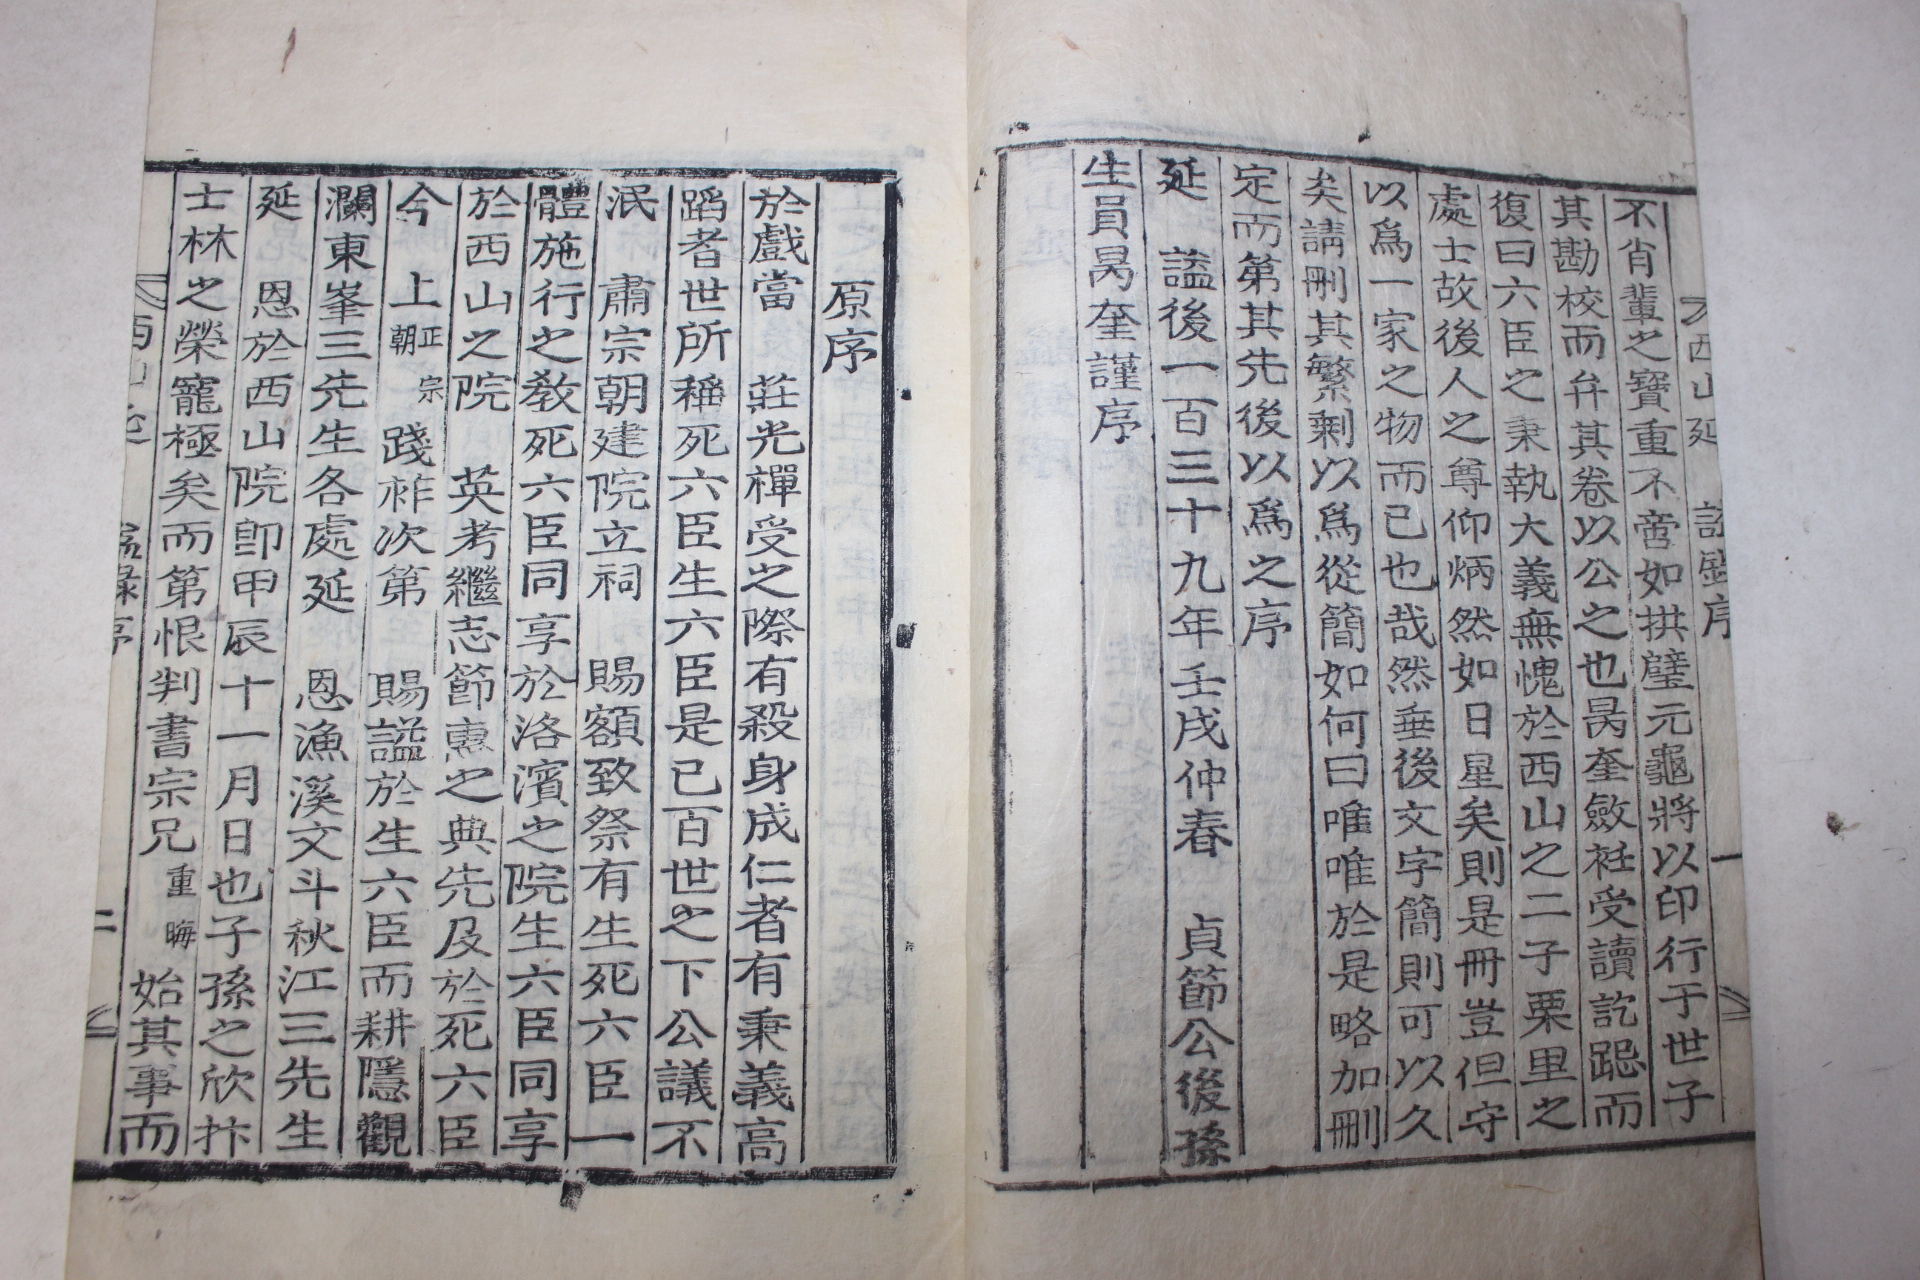 不肖輩之寶重不啻如拱璧元龜將以印行于世子
其勘校而弁其卷以公之也昺奎斂衽受讀訖跽而
復曰六臣之秉執大義無愧於西山之二子栗里之
處士故後人之尊仰炳然如日星矣則是冊豈但守
以爲一家之物而已也哉然垂後文字簡則可以久
矣請刪其繁剩以爲從簡如何曰唯唯於是略加刪
定而第其先後以爲之序
延 諡後一百三十九年壬戌仲春 貞節公後孫
生員昺奎謹序
原序
於戲當 莊光禪受之際有殺身成仁者有秉義高
蹈者世所稱死六臣生六臣是已百世之下公議不
泯 肅宗朝建院立祠 賜額致祭有生死六臣一
體施行之教死六臣同享於洛濱之院生六臣同享
於西山之院 英考繼志節惠之典先及於死六臣
今 上正宗朝 踐祚次第 賜諡於生六臣而耕隱觀
瀾東峯三先生各處延 恩漁溪文斗秋江三先生
延 恩於西山院卽甲辰十一月日也子孫之欣抃
士林之榮寵極矣而第恨判書宗兄重晦始其事而
西山延 諡錄序 一
二